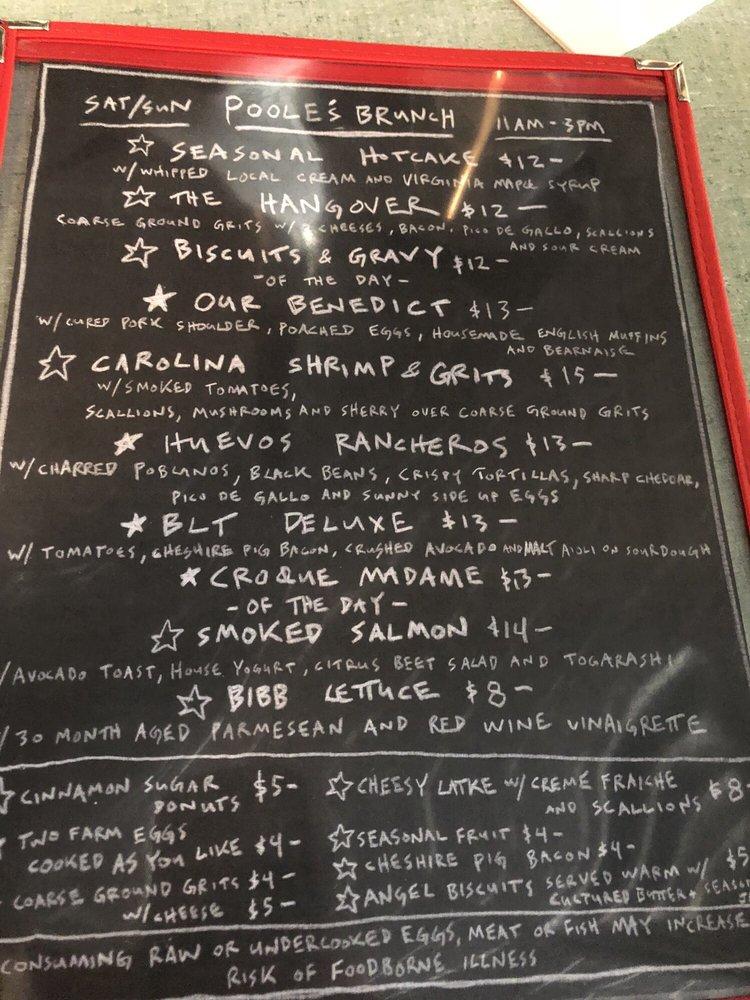 SAT/SUN POOLE'S BRUNCH 11AM - 3PM
SEASONAL HOTCAKE $12-
W/WHIPPED LOCAL CREAM AND VIRGINIA MAPLE SYRUP
THE HANGOVER $12-
COARSE GROUND GRITS W/ 3 CHEESES, BACON, PICO DE GALLO, SCALLIONS
AND SOUR CREAM
BISCUITS & GRAVY $12-
-OF THE DAY-
OUR BENEDICT $13-
W/CURED PORK SHOULDER, POACHED EGGS, HOUSEMADE ENGLISH MUFFINS
AND BEARNAISE
CAROLINA SHRIMP & GRITS $15-
W/SMOKED TOMATOES,
SCALLIONS, MUSHROOMS AND SHERRY OVER COARSE GROUND GRITS
HUEVOS RANCHEROS $13-
W/CHARRED POBLANOS, BLACK BEANS, CRISPY TORTILLAS, SHARP CHEDDAR,
PICO DE GALLO AND SUNNY SIDE UP EGGS
BLT DELUXE $13-
W/ TOMATOES, CHESHIRE PIG BACON, CRUSHED AVOCADO AND MALT AIOLI ON SOURDOUGH
CROQUE MADAME $13-
-OF THE DAY-
SMOKED SALMON $14-
/AVOCADO TOAST, HOUSE YOGURT, CITRUS BEET SALAD AND TOGARASHI
BIBB LETTUCE $8-
/30 MONTH AGED PARMESEAN AND RED WINE VINAIGRETTE
CINNAMON SUGAR DONUTS $5-
TWO FARM EGGS
COOKED AS YOU LIKE $4-
COARSE GROUND GRITS $4-
W/CHEESE $5-
CHEESY LATKE W/ CREME FRAICHE
AND SCALLIONS $8-
SEASONAL FRUIT $4-
CHESHIRE PIG BACON $4-
ANGEL BISCUITS SERVED WARM W/ $5
CULTURED BUTTER +
CONSUMING RAW OR UNDERCOOKED EGGS, MEAT OR FISH MAY INCREASE
RISK OF FOODBORNE ILLNESS